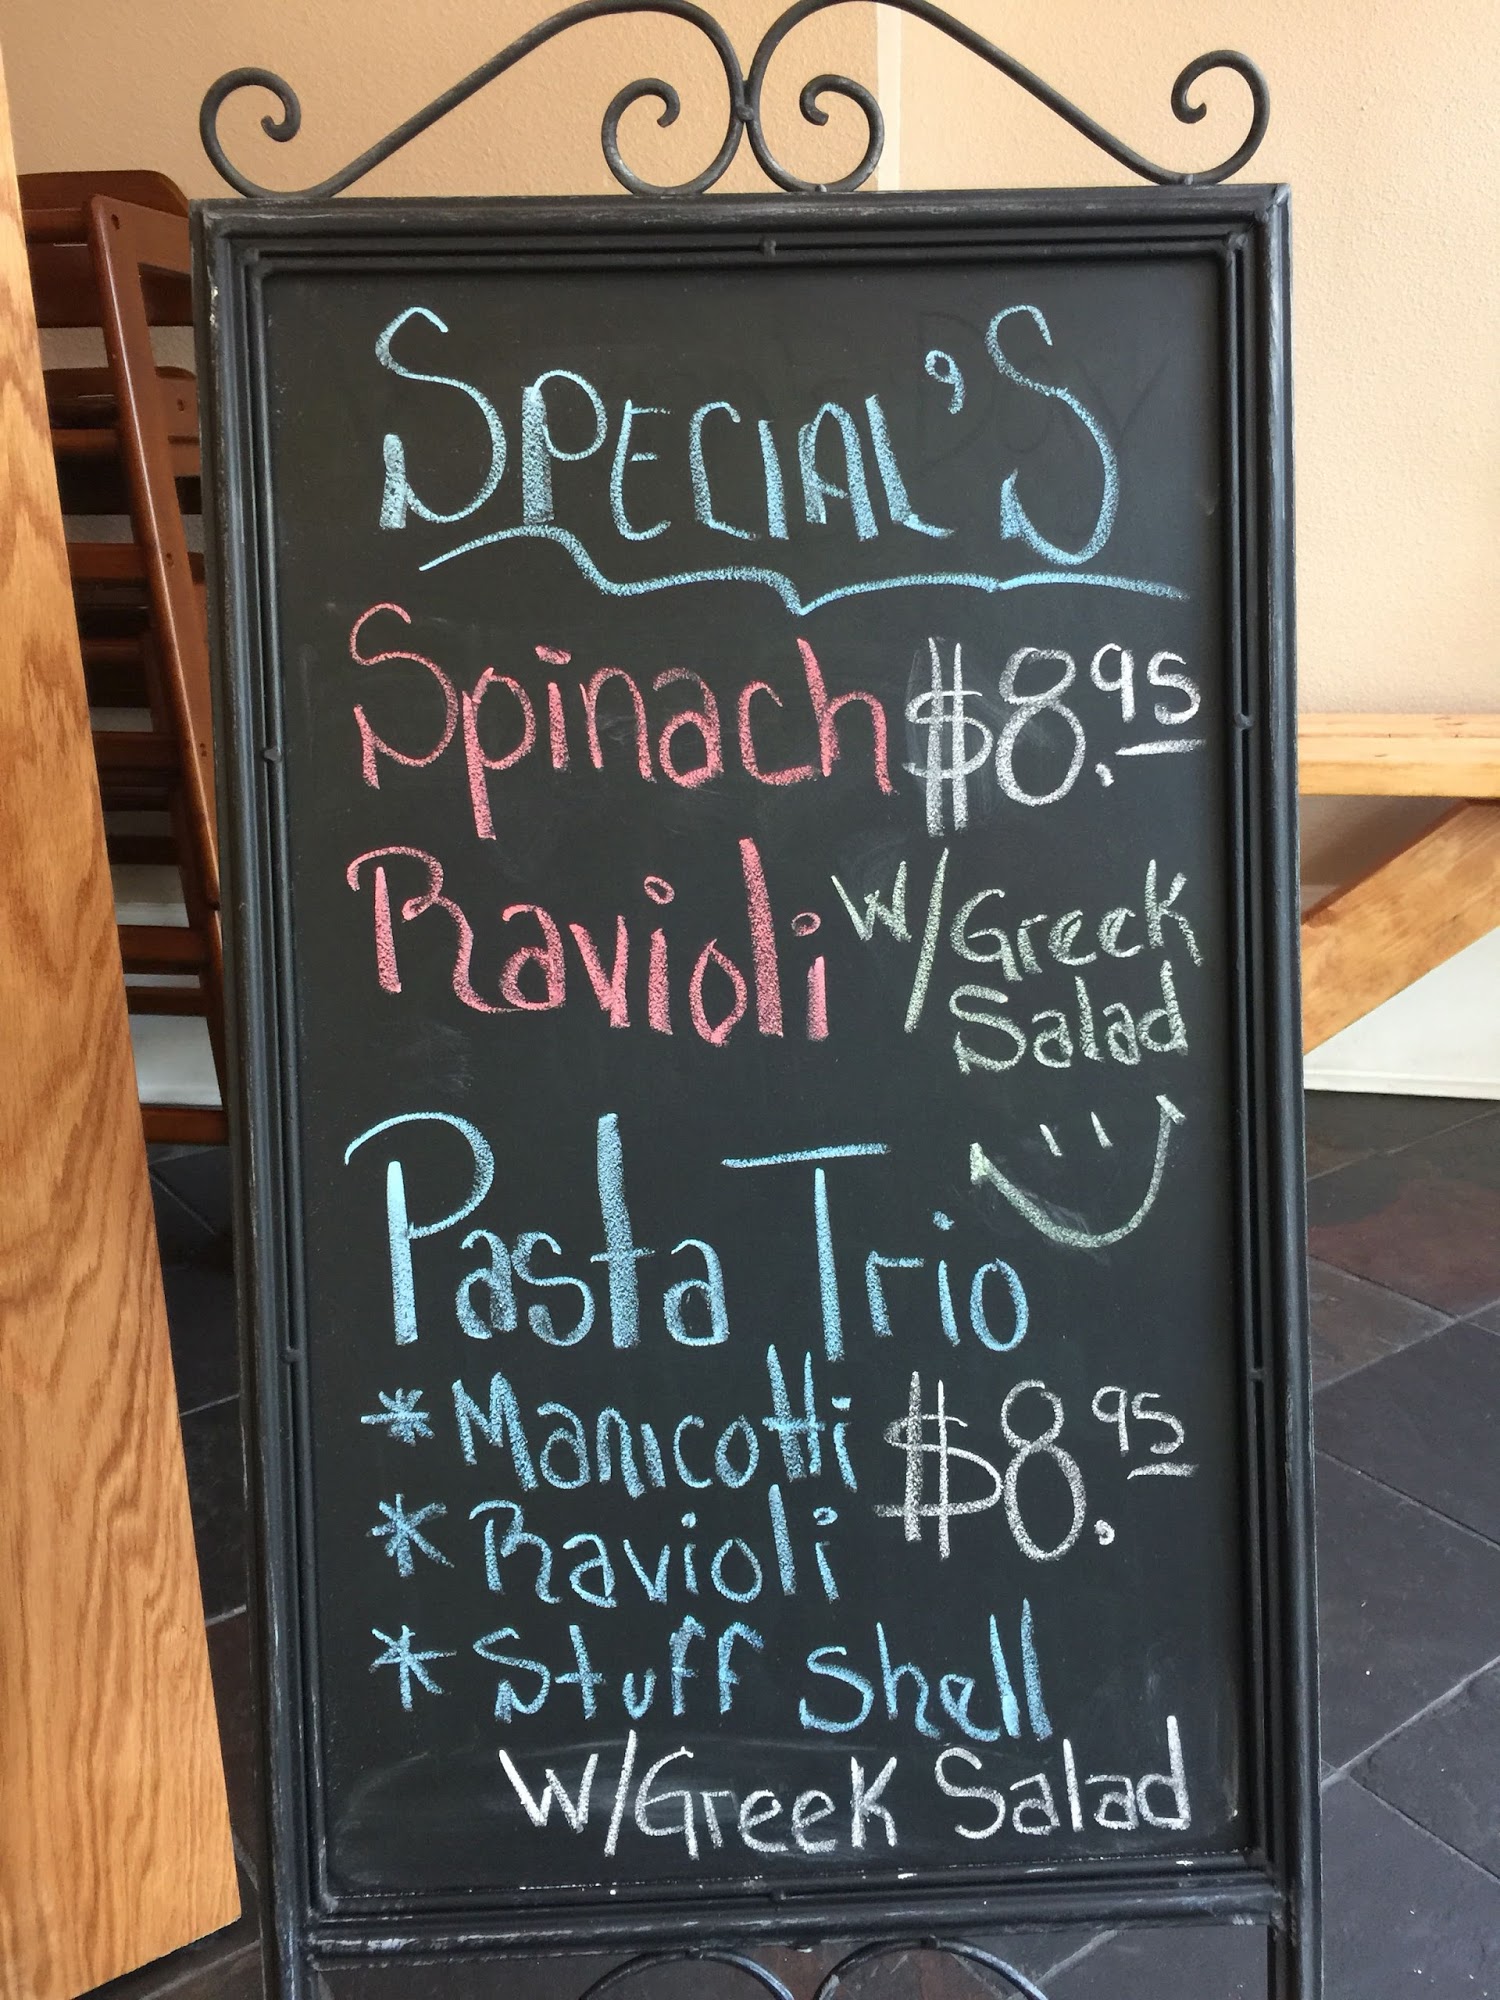 SPECIAL'S
Spinach $8.95
Ravioli w/Greek
Salad
Pasta Trio
* Manicotti $8.95
* Ravioli
* Stuff Shell
W/Greek Salad